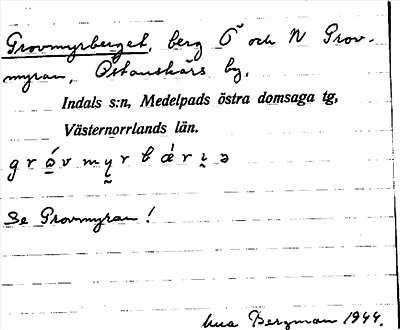 Provmyrberget, berg Ö och N Prov-
myran, Östanskärs by,
Indals s:n, Medelpads östra domsaga tg,
Västernorrlands län.
g r ǫ́ v m y̰ r b ǽ r i̮ ə
Se Provmyran!
Bergman 1944.